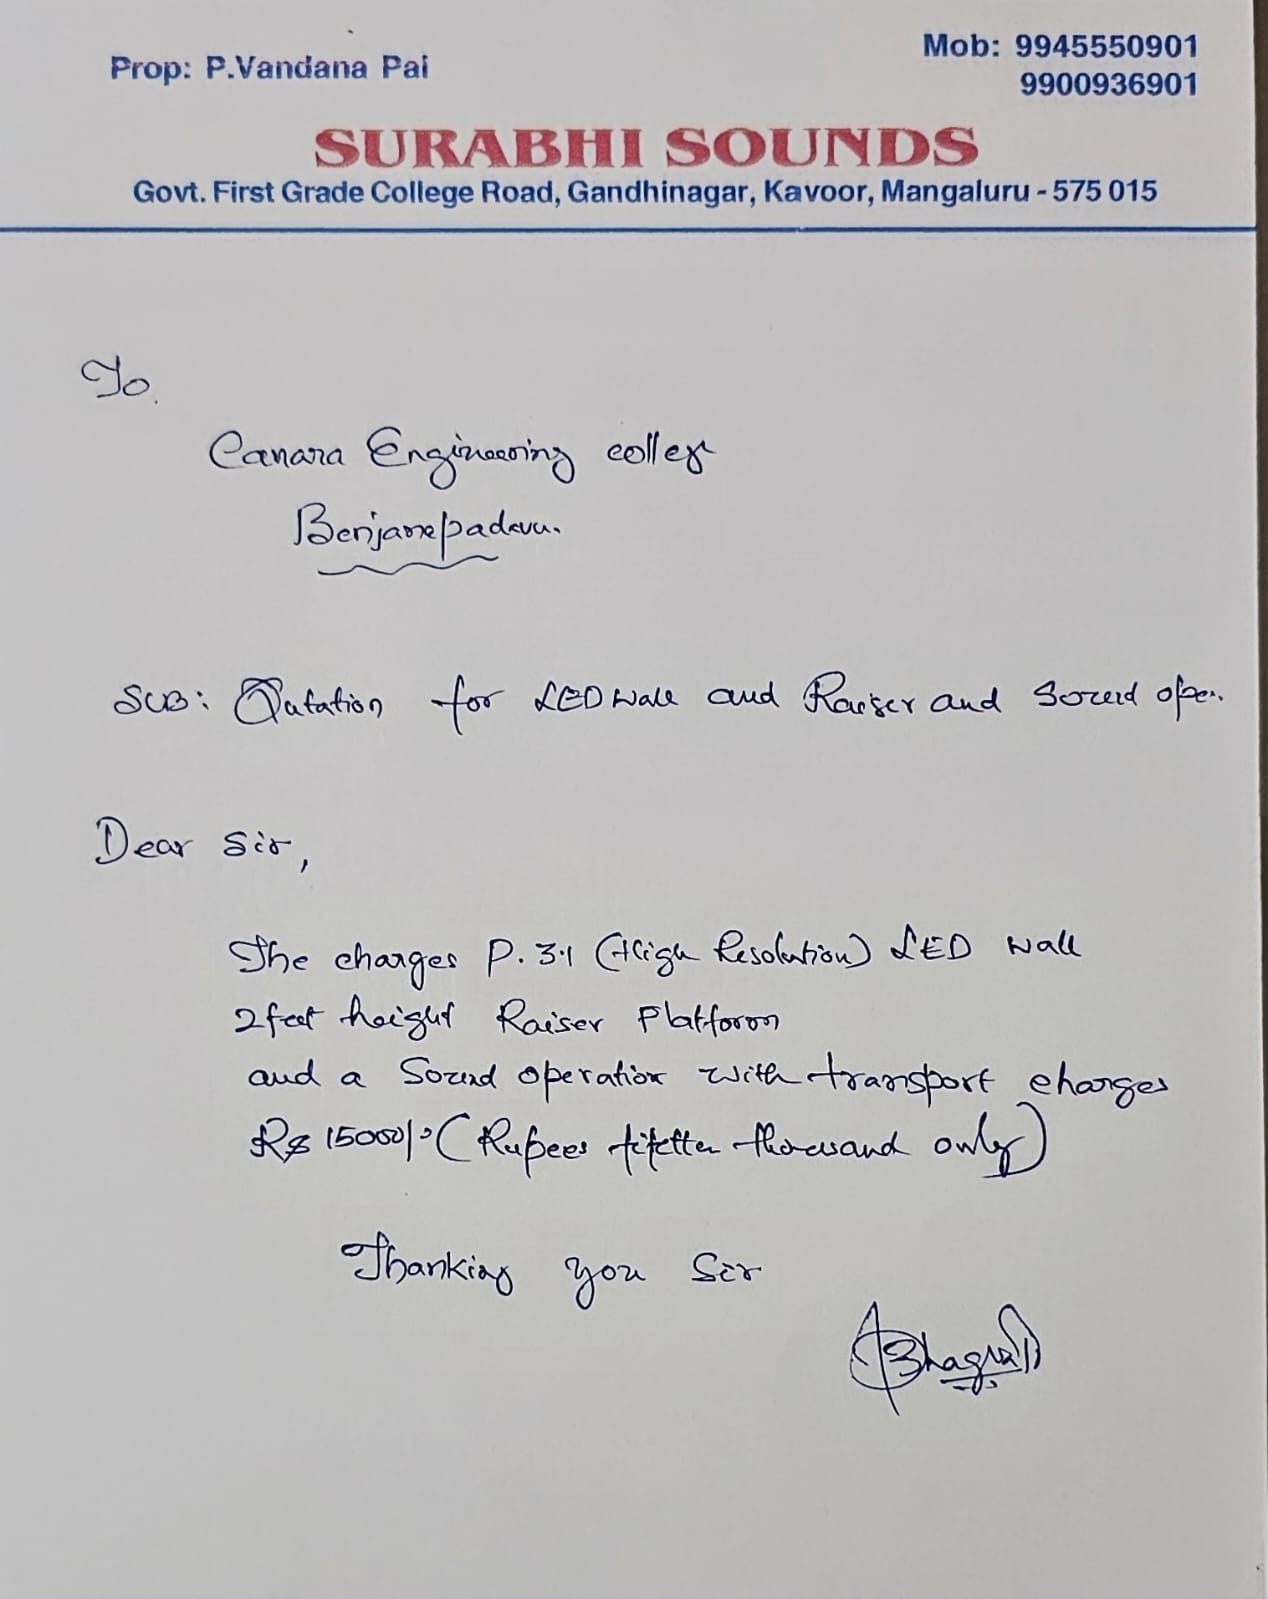 Prop: P.Vandana Pai
Mob: 9945550901
9900936901
SURABHI SOUNDS
Govt. First Grade College Road, Gandhinagar, Kavoor, Mangaluru - 575 015
To.
Canara Engineering colleg
Benjanapadavu.
SUB: Qutation for LED wall and Raiser and Sound oper.
Dear Sir,
The charges P. 3.1 (High Resolution) LED wall
2 feet height Raiser Platform
and a Sound operation with transport charges
Rs 15000/- (Rupees fifetten thousand only)
Thanking you Sir